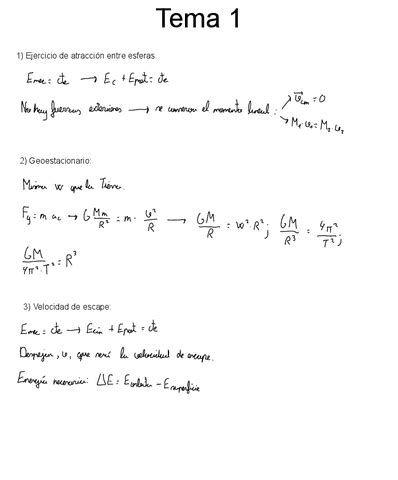 Tema 1
1) Ejercicio de atracción entre esferas.
Emec = cte → Ec + Epot = cte
No hay fuerzas exteriores → se conserva el momento lineal : → v⃗cm = 0
→ M₁·v₁ = M₂·v₂
2) Geoestacionario:
Misma w que la Tierra.
Fg = m ac → G Mm/R² = m · v²/R → GM/R = w²·R²; GM/R³ = 4π²/T²;
GM/4π²·T² = R³
3) Velocidad de escape:
Emec = cte → Ecin + Epot = cte
Despejar, v, que será la velocidad de escape.
Energía necesaria: ΔE = Eorbita - Esuperficie